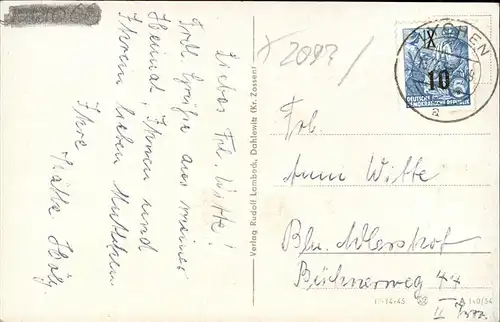 Liebes Frl. Witte!
Groß Grüße aus meiner
Heimat, Ihnen und
Ihrem lieben Muttchen
Ihre Käthe Hölz
Verlag Rudolf Lambeck, Dahlewitz (Kr. Zossen)
2097
X
10
DEUTSCHE
DEMOKRATISCHE REPUBLIK
a
Frl.
Anni Witte
Bln. Adlershof
Büchnerweg 44
II